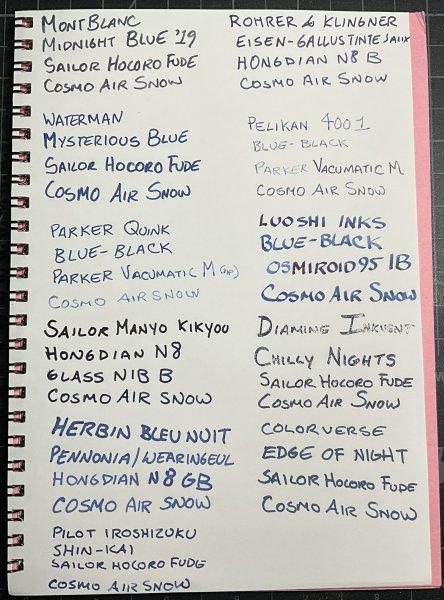 MONTBLANC
MIDNIGHT BLUE '19
SAILOR HOCORO FUDE
COSMO AIR SNOW
WATERMAN
MYSTERIOUS BLUE
SAILOR HOCORO FUDE
COSMO AIR SNOW
PARKER QUINK
BLUE-BLACK
PARKER VACUMATIC M
COSMO AIR SNOW
SAILOR MANYO KIKYOU
HONGDIAN N8
GLASS NIB B
COSMO AIR SNOW
HERBIN BLEU NUIT
PENNONIA/WEARINGEUL
HONGDIAN N8 GB
COSMO AIR SNOW
PILOT IROSHIZUKU
SHIN-KAI
SAILOR HOCORO FUDE
COSMO AIR SNOW
ROHRER & KLINGNER
EISEN-GALLUSTINTE
HONGDIAN N8 B
COSMO AIR SNOW
PELIKAN 4001
BLUE-BLACK
PARKER VACUMATIC M
COSMO AIR SNOW
LUOSHI INKS
BLUE-BLACK
OSMIROID 95 IB
COSMO AIR SNOW
DIAMINE INKVENT
CHILLY NIGHTS
SAILOR HOCORO FUDE
COSMO AIR SNOW
COLORVERSE
EDGE OF NIGHT
SAILOR HOCORO FUDE
COSMO AIR SNOW